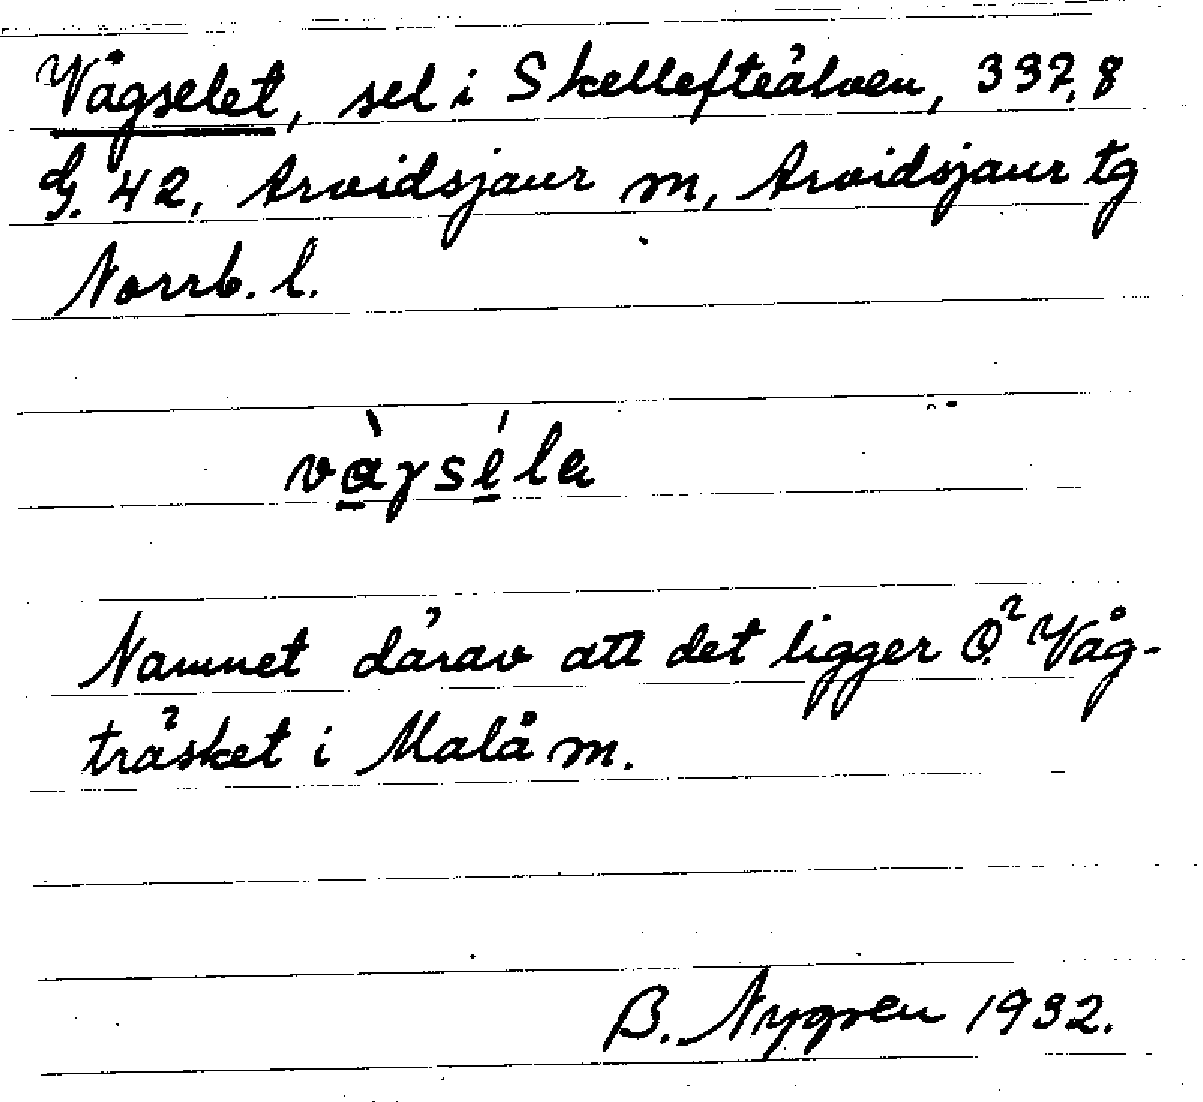 Vågselet, sel i Skellefteälven, 332,8
G. 42, Arvidsjaur m, Arvidsjaur tg
Norrb. l.
vàɣséla
Namnet därav att det ligger Ö. Våg-
träsket i Malå m.
B. Nygren 1932.